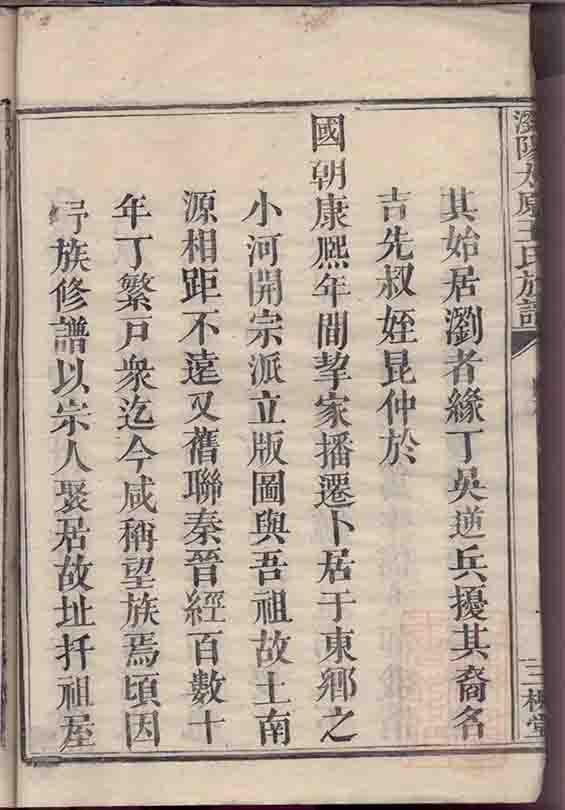 瀏陽太原王氏族譜
三槐堂
其始居瀏者緣丁吳逆兵擾其裔名
吉先叔姪昆仲於
國朝康熙年間挈家播遷卜居于東鄉之
小河開宗派立版圖與吾祖故土南
源相距不遠又舊聯秦晉經百數十
年丁繁戶衆迄今咸稱望族焉頃因
族修譜以宗人聚居故址扦祖屋